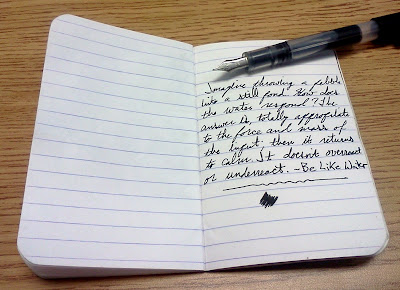 Imagine throwing a pebble
into a still pond. How does
the water respond? The
answer is, totally appropriate
to the force and mass of
the input, then it returns
to calm. It doesn't overreact
or underreact. - Be Like Water